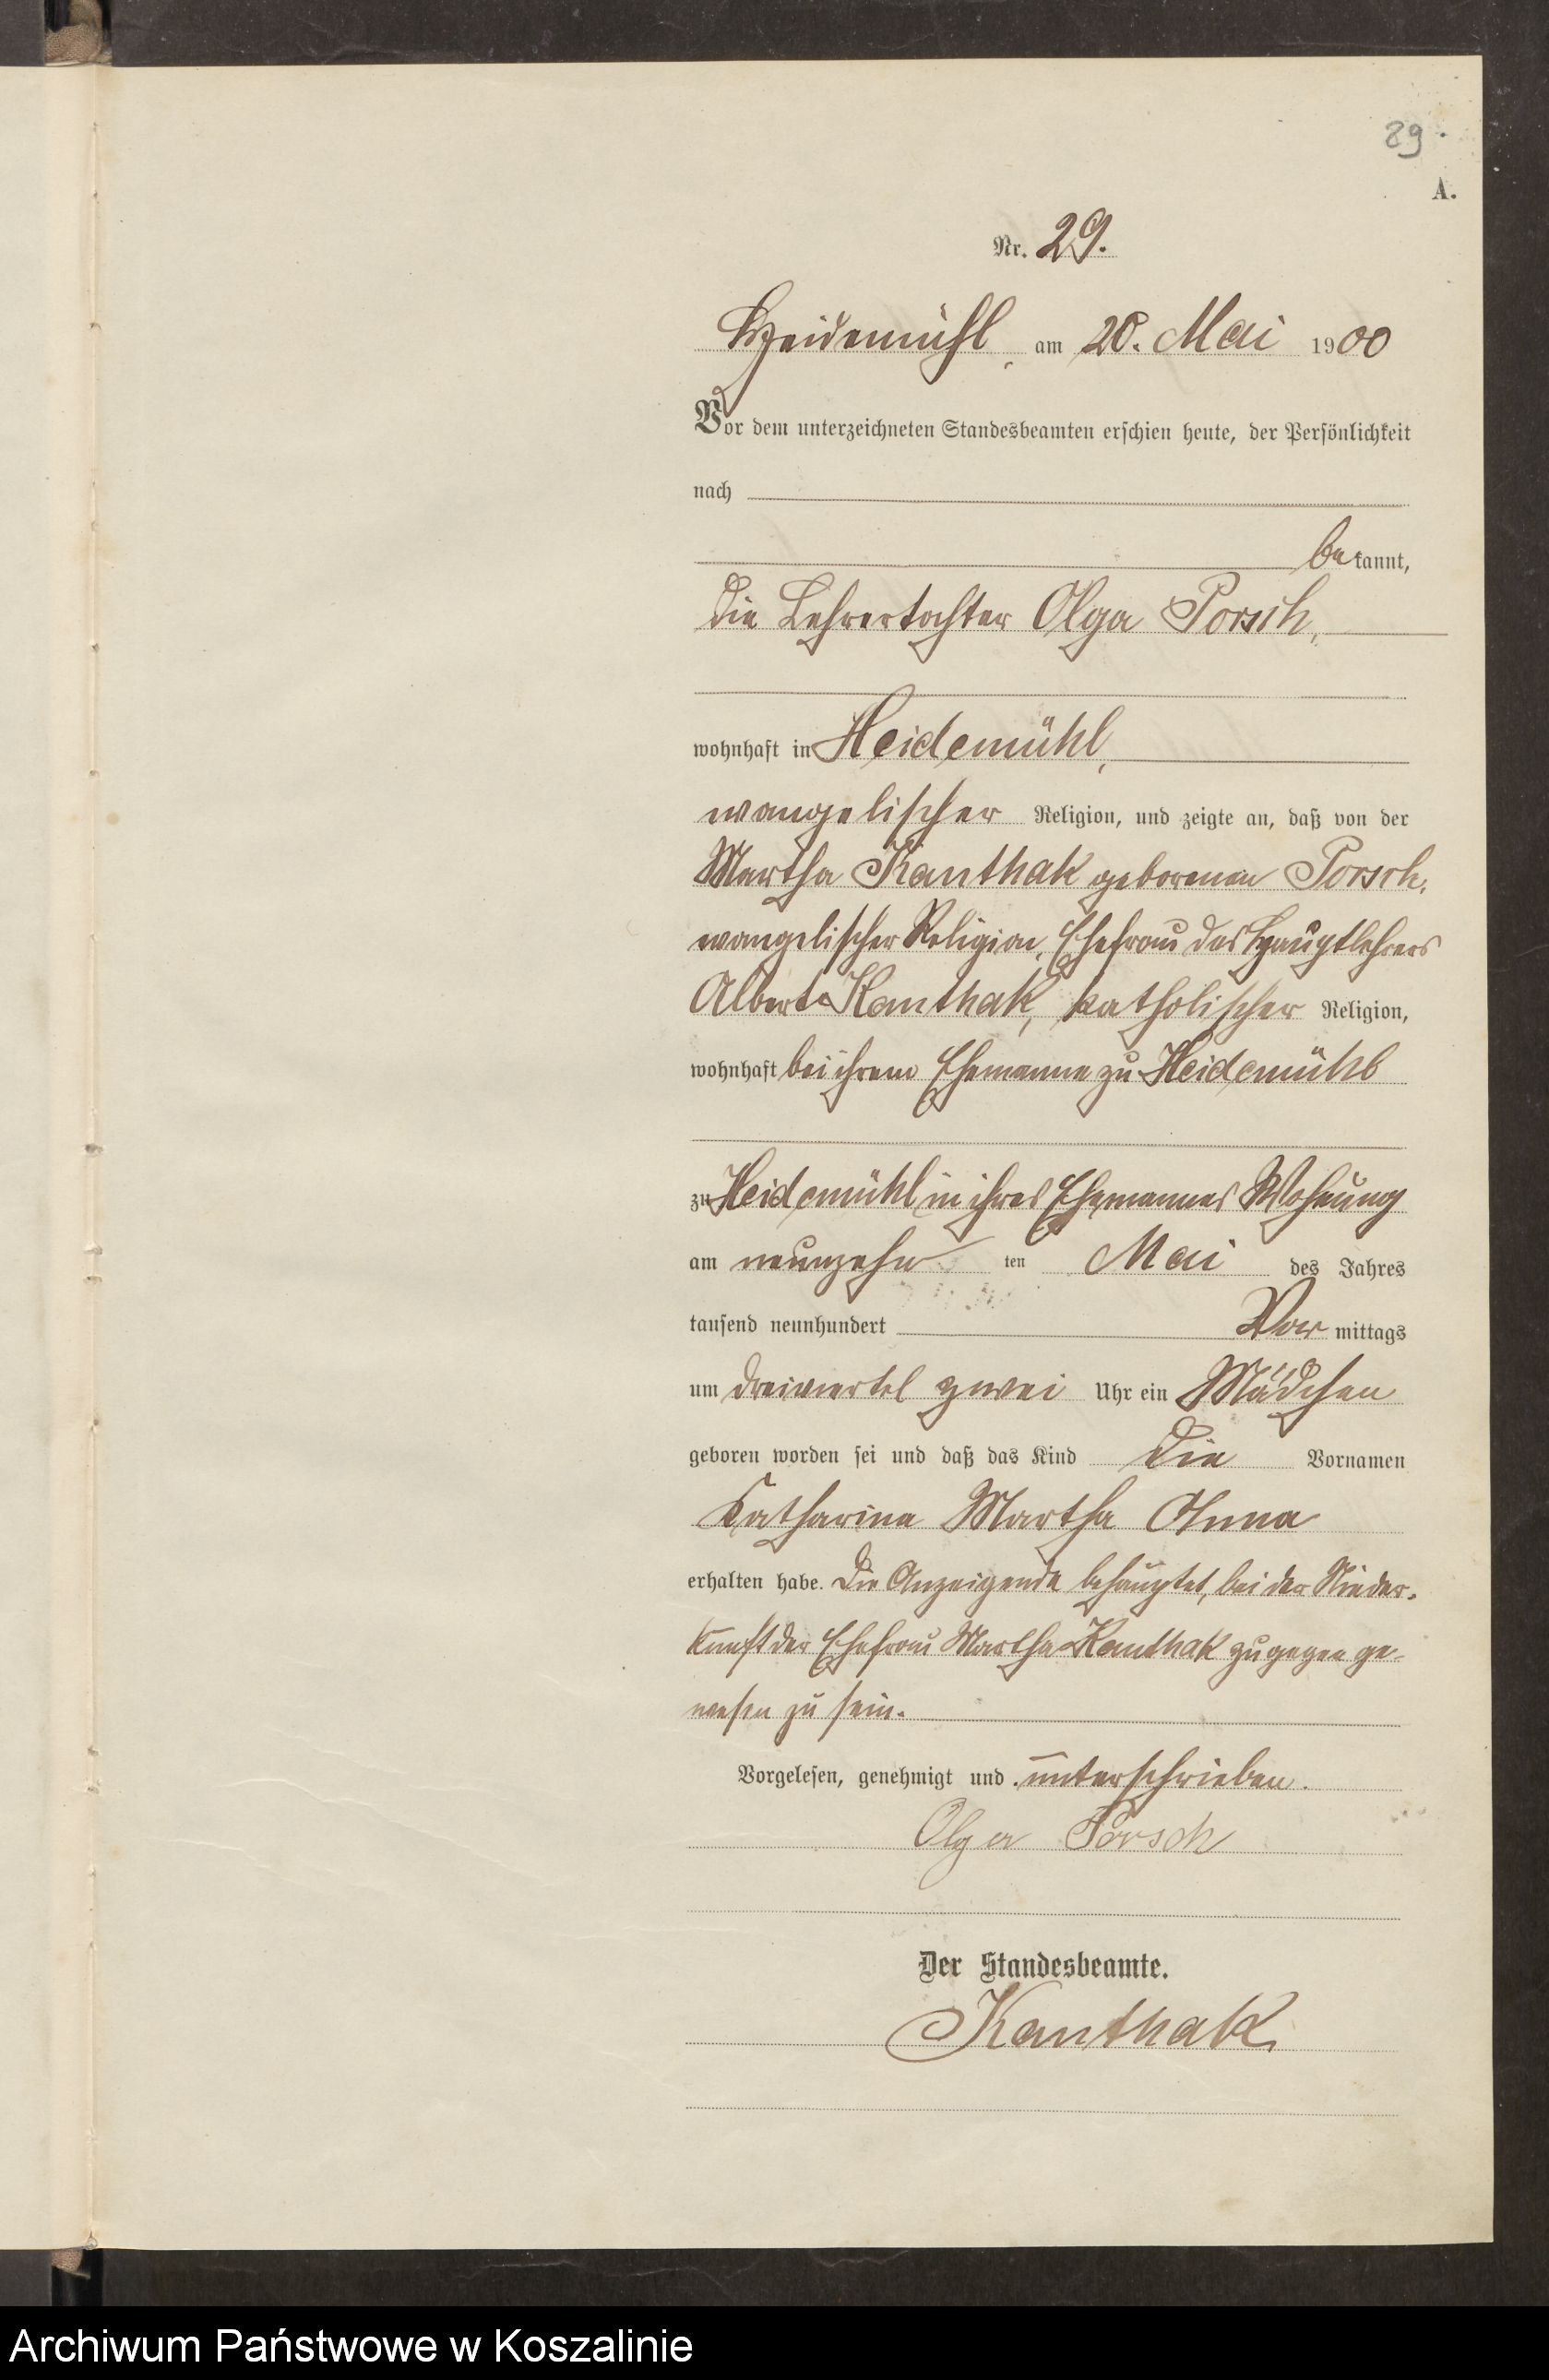 29.
A.
Nr. 29.
Heidemühl, am 20. Mai 1900
Vor dem unterzeichneten Standesbeamten erschien heute, der Persönlichkeit
nach
bekannt,
die Lehrertochter Olga Porsch,
wohnhaft in Heidemühl,
evangelischer Religion, und zeigte an, daß von der
Martha Kanthak geborenen Porsch,
evangelischer Religion, Ehefrau des Hauptlehrers
Albert Kanthak, katholischer Religion,
wohnhaft bei ihrem Ehemanne zu Heidemühl
zu Heidemühl in ihres Ehemannes Wohnung
am neunzehn ten Mai des Jahres
tausend neunhundert Vor mittags
um dreiviertel zwei Uhr ein Mädchen
geboren worden sei und daß das Kind die Vornamen
Katharina Martha Anna
erhalten habe. Die Anzeigende behauptet, bei der Nieder-
kunft der Ehefrau Martha Kanthak zugegen ge-
wesen zu sein.
Vorgelesen, genehmigt und unterschrieben.
Olga Porsch
Der Standesbeamte.
Kanthak
Archiwum Państwowe w Koszalinie